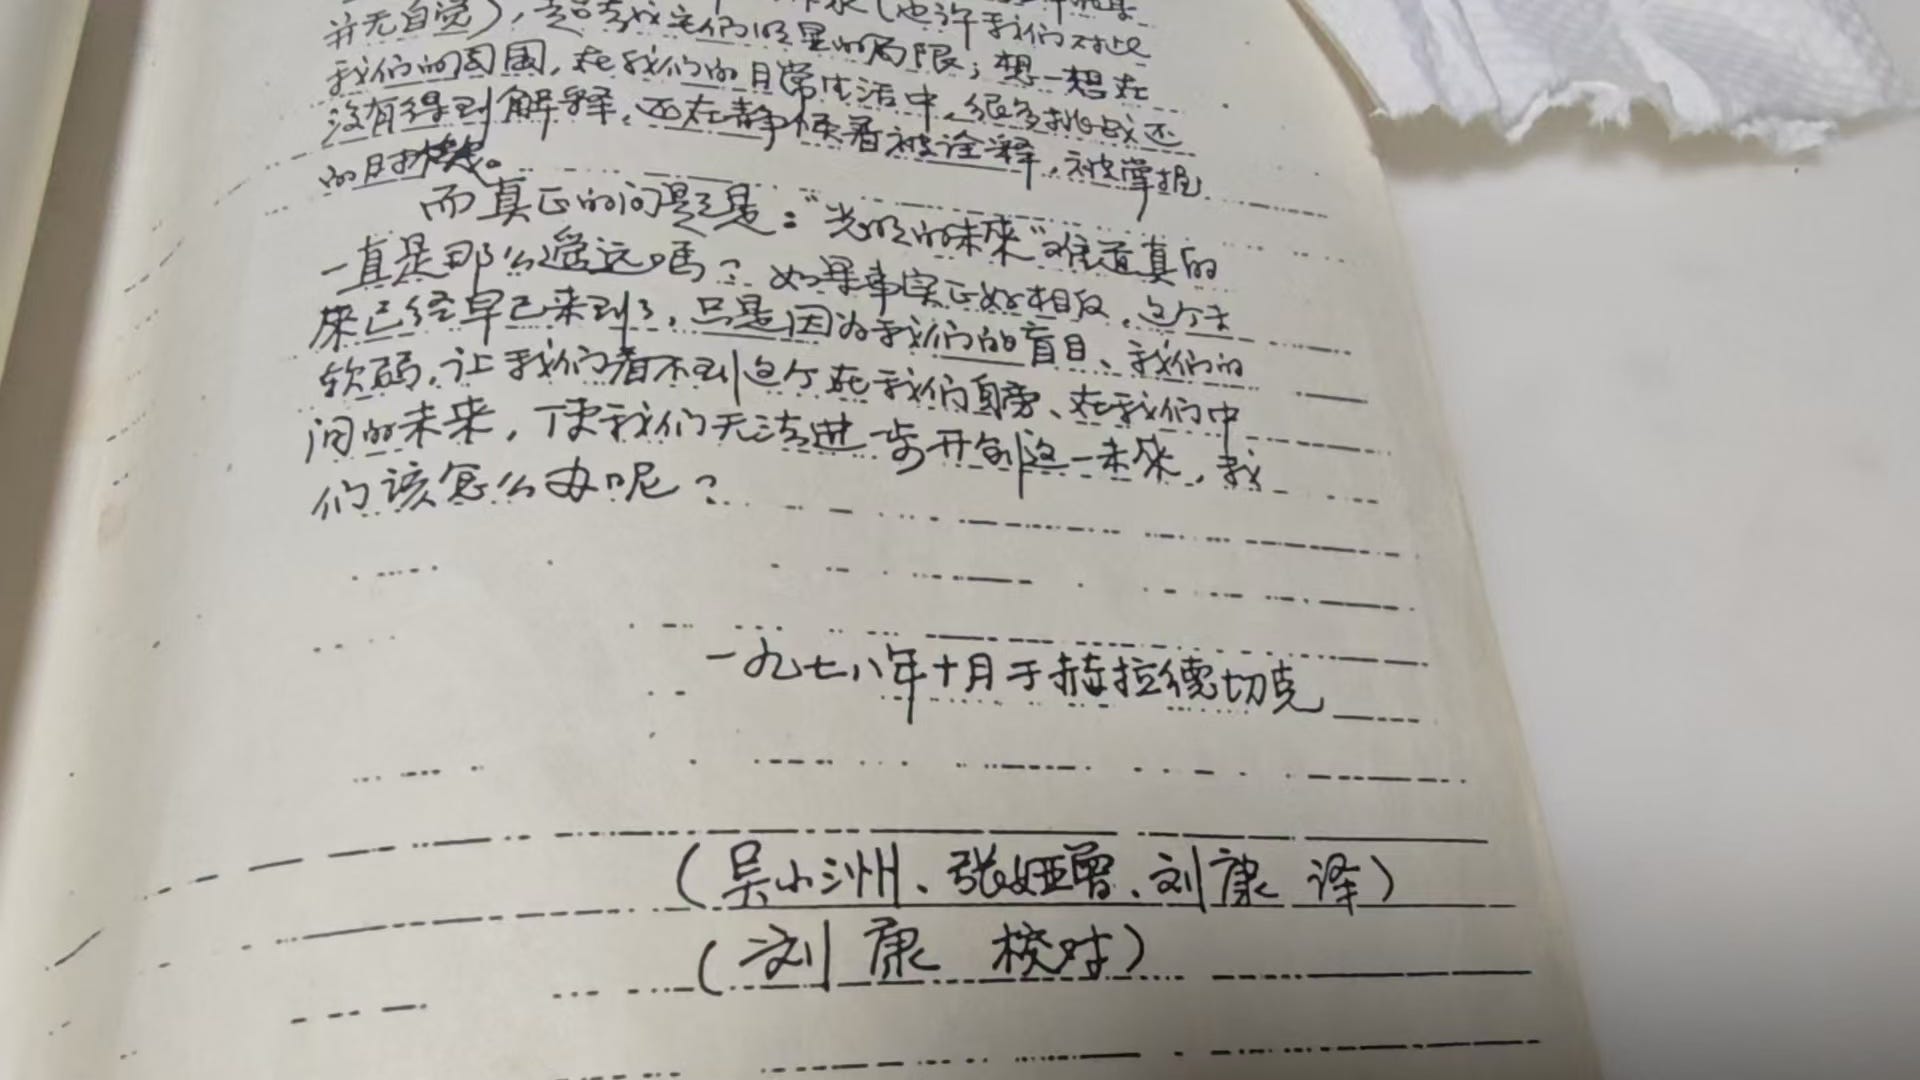 并无自觉），是否对它们明显的局限；想一想在
我们的周围，在我们的日常生活中，很多挑战还
没有得到解释，还在静候着被诠释，被掌握
的时机。
而真正的问题是：“光明的未来”难道真的
一直是那么遥远吗？如果事实正好相反，这个未
来已经早已来到了，只是因为我们的盲目、我们的
软弱，让我们看不到这个在我们身旁、在我们中
间的未来，使我们无法进步开创这一未来，我
们该怎么办呢？
一九七八年十月于赫拉德切克
（吴小洲、张娅曾、刘康 译）
（刘康 校对）